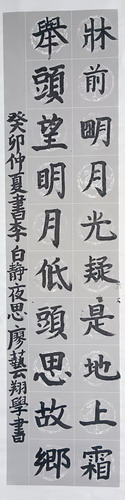 牀前明月光疑是地上霜
舉頭望明月低頭思故鄉
癸卯仲夏書李白靜夜思廖藝翔學書